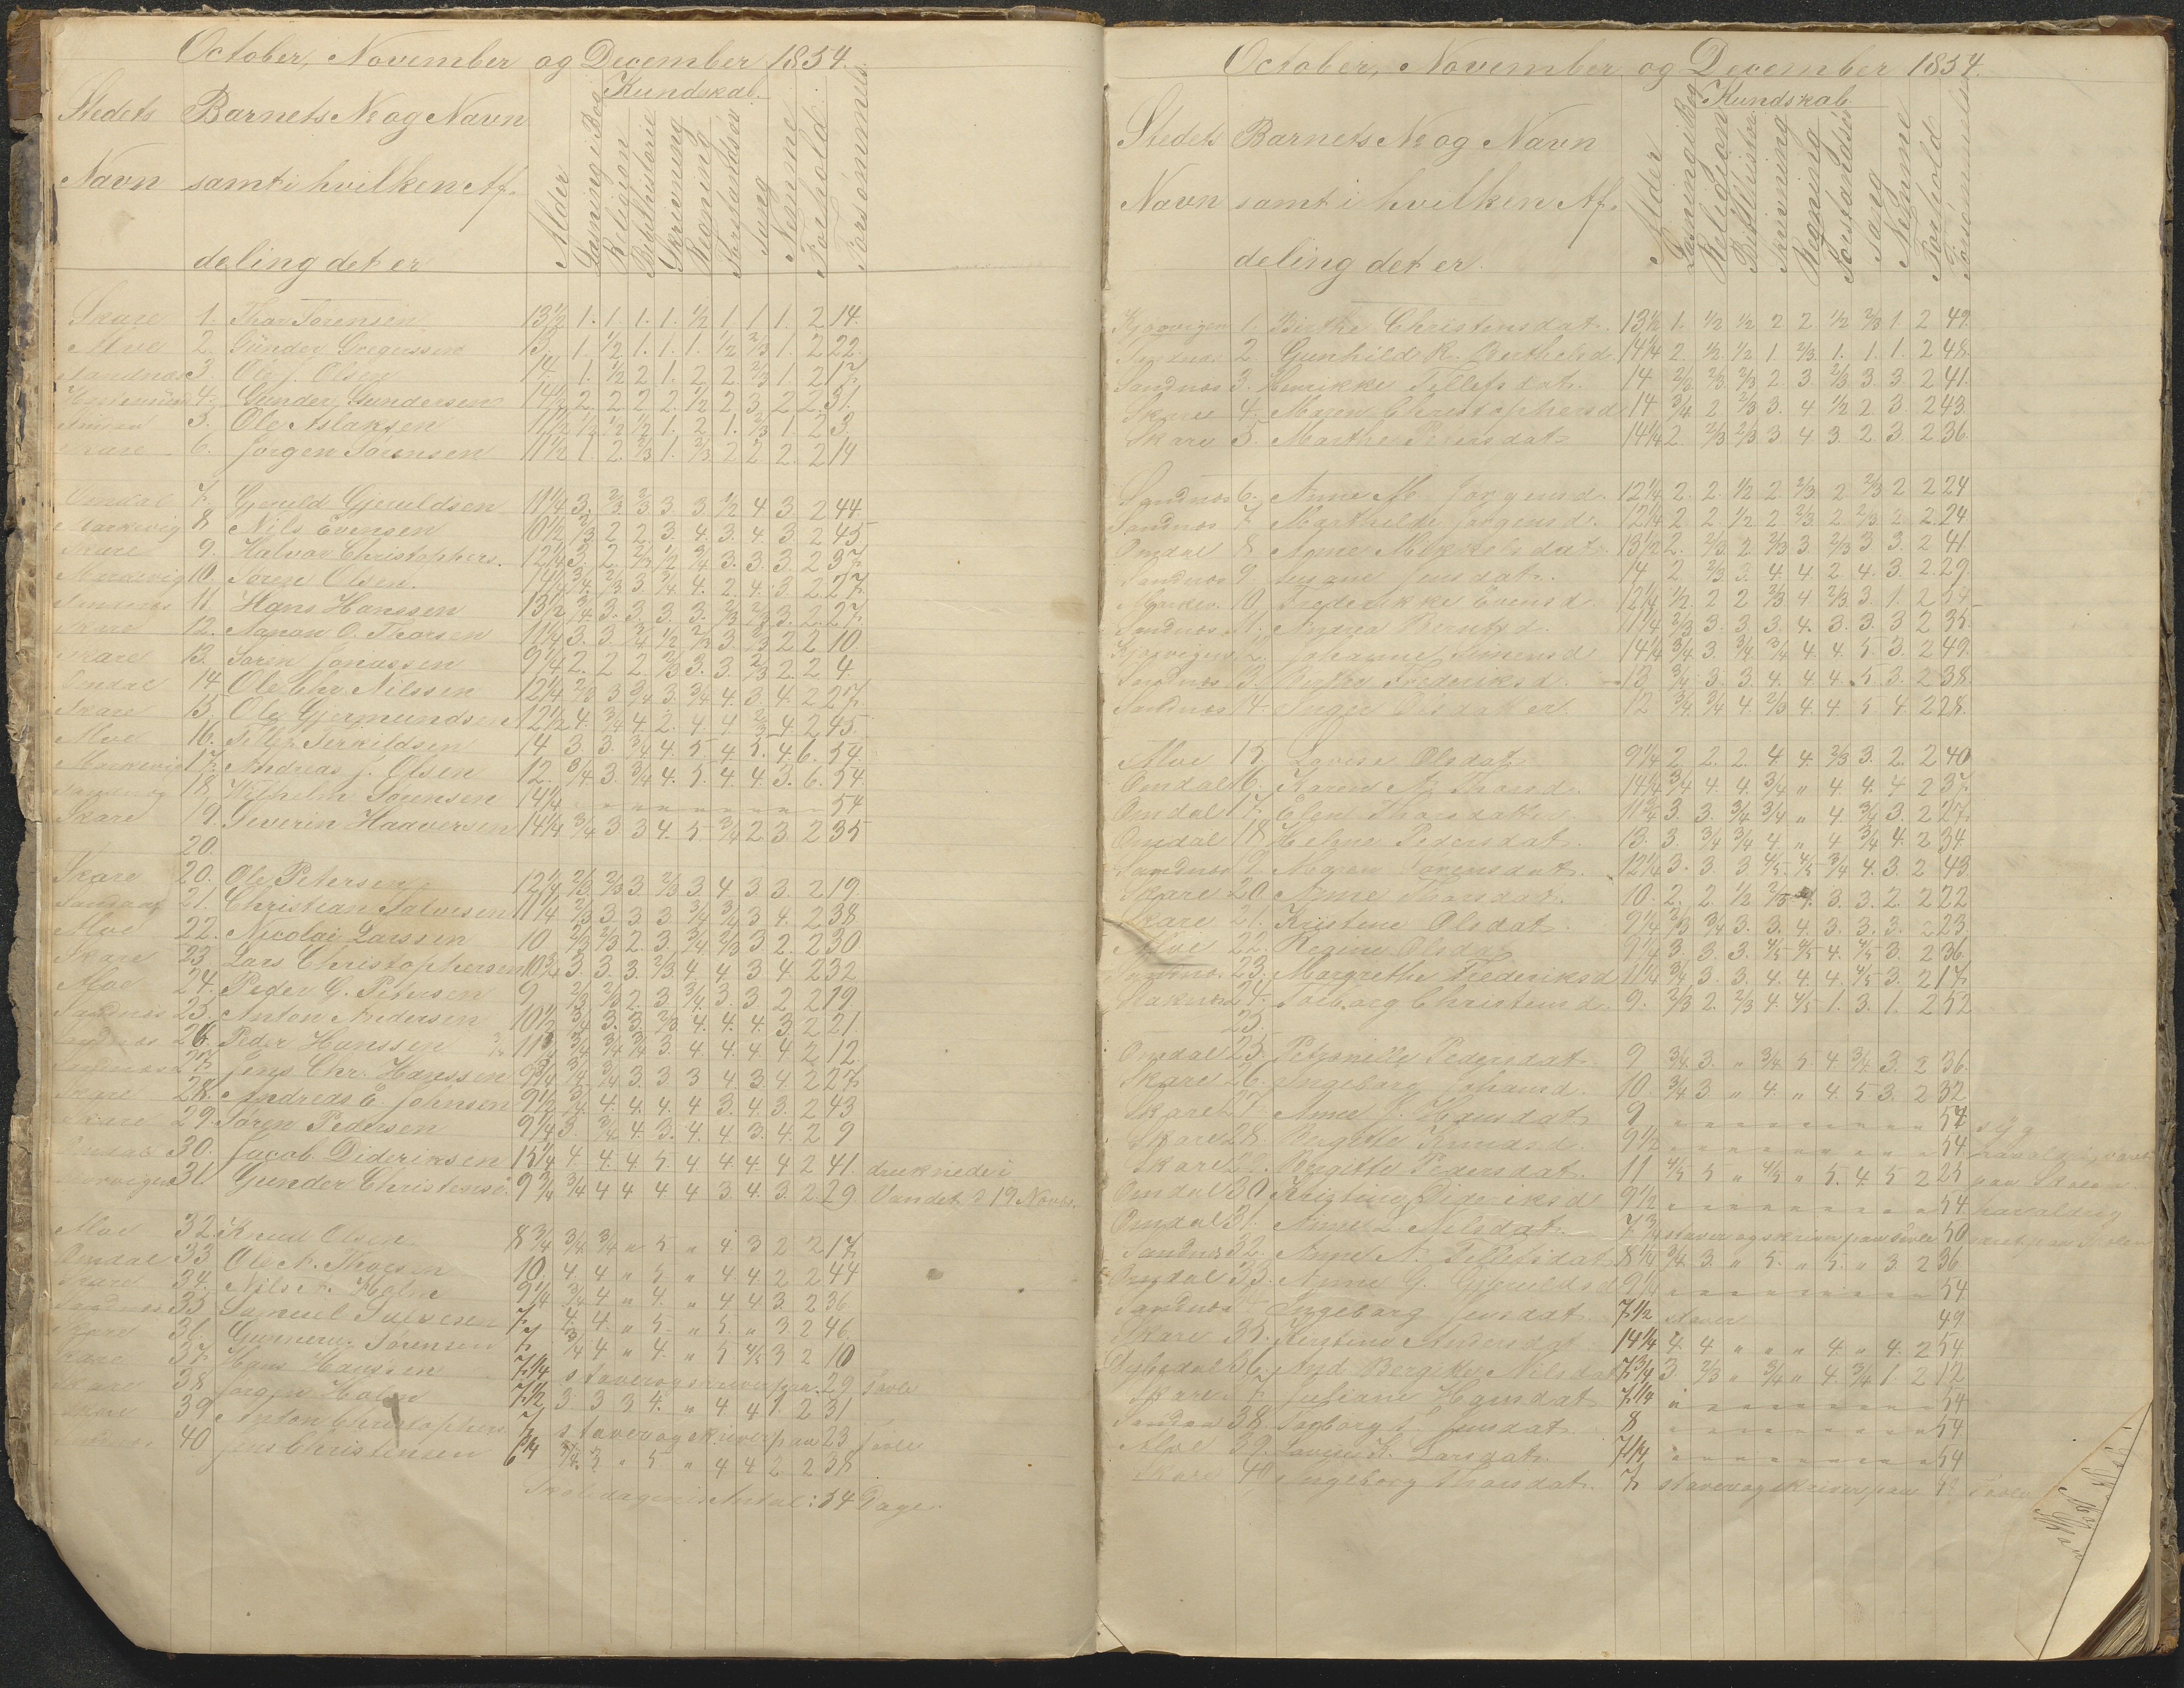 October, November og December 1854.
Kundskab.
Stedets Barnets No og Navn
Navn samt i hvilken Af-
deling det er
Alder Læsning i Bog Religion Bibelhistorie Skrivning Regning Forstandsöv Sang Nemme Forhold Forsömmelse
Skare 1. Thor Sörensen 13½ 1. 1. 1. 1. ½ 1 1 1. 2 14.
Moe 2. Günder Gregerssen 13. 1. ½ 1. 1. 1. ½ ⅔ 1. 2 22.
Sandnæs 3. Ole J. Olsen 14 1. ½ 2 1. 2 2. ⅔ 1. 2 17.
4. Gunder Gundersen 14½ 2. 2 2 2. ½ 2 3 2 2 31.
5. Ole Aslaksen 11½ ½ ½ ½ 1. 2 1. ⅔ 1 2 3.
Skare 6. Jörgen Sörensen 11½ 1. 2. ⅔ 1. ⅔ 2 2 2. 2 14
Omdal 7. Gjeruld Gjeruldsen 11¼ 3. ⅔ ⅔ 3 3 ½ 4 3 2 44
Markevig 8 Nils Evensen 10½ ⅔ 2 2. 3. 4. 3. 4 3. 2 45
Skare 9. Halvor Christophers. 12¼ 3. 2 ⅔ ½ ¾ 3. 3. 3 2 37.
10. Sören Olsen. 14¼ ¾ ⅔ 3 ¾ 4. 2. 4. 3 2 27.
11. Hans Hanssen 13½ ¾ 3. 3 3. 3. ⅔ ⅔ 3. 2. 27.
Skare 12. Aanon O. Thorsen 11¼ 3. 3. ¾ ½ ⅔ 3 ⅔ 2 2 10.
Skare 13. Sören Jonassen 9¼ 2. 2 2. ⅔ 3. 3. ⅔ 2. 2 4
Omdal 14 Ole Chr. Nilssen 12¼ ⅔ 3 ¾ 3. ¾ 4. 3. 4. 2 27.
Skare 15 Ole Gjermundsen 12½ 4. ¾ 4 2. 4. 4 ⅔ 4 2 45.
Moe 16. Tellef Terkildsen 14 3. 3. ¾ 4. 5 4 5. 4 6. 54.
Markevig 17. Andreas J. Olsen 12. ¾ 3 ¾ 4. 5. 4. 4. 3. 6. 54.
18. Wilhelm Sörensen 14¼ " " " " " " " " " 54
Skare 19. Severin Haaversen 14¼ ¾ 3 3 4. 5. ¾ 2 3. 2 35
20.
Skare 20. Ole Petersen 12¼ ⅔ ⅔ 3. ⅔ 3. 4. 3 3. 2 19.
21. Christian Salvesen 11¼ ⅔ 3 3. 3 ¾ ¾ 3 4. 2 38
Moe 22. Nicolai Larssen 10 ⅔ ⅔ 2. 3. ¾ ⅔ 3 2. 2 30
Skare 23. Lars Christophersen 10¾ 3. 3. 3. ⅔ 4. 4 3 4. 2 32
Moe 24. Peder G. Petersen 9 ⅔ ⅔ 2. 3 ¾ 3. 3 2 2 19
Sandnæs 25. Anton Andersen 10½ ¾ 3. 3. ⅔ 4. 4. 4. 3 2 21.
Sandnæs 26. Peder Hanssen 11¾ ¾ ¾ ¾ 3. 4 4. 4. 4 2 12
Sandnæs 27. Jens Chr. Hanssen 9¾ ¾ ¾ 3. 3. 3 4 3 4. 2 27.
Skare 28. Andreas E. Johnsen 9½ ¾ 4. 4. 4. 4 3. 4. 3. 2 43
Skare 29. Sören Pedersen 9¼ 3. ¾ 4. 3. 4. 4 3. 4. 2 9
Omdal 30. Jacob Dideriksen 15¼ 4. 4. 4 5. 4. 4. 4. 4 2 41. druknede i
31. Gunder Christens. 9¾ ¾ 4 4 4 4 3. 4. 3. 2. 29. Vandet d. 19 Novbr.
Moe 32. Knud Olsen. 8¾ ¾ ¾ " 5 " 4 3 2 2 17.
Omdal 33. Ole N. Thorsen 10. 4. 4 " 5. " 4 4. 2 2 44
Skare 34. Nils A. Holm 9¼ ¾ 4 " 4. " 4 4 3. 2 36.
Sandnæs 35. Samuel Salvesen 7. 4. 4. " 5. " 5. " 3 2 46.
Skare 36. Sörensen 7. ¾ 4 " 4. " 5 ⅘ 3 2 10
Skare 37. Hans Hanssen 7¼ staver og skriver paa 29 Tavle
Skare 38. Jörgen Holm 7½ 3. 3 3 4. " 4 4 1. 2 31
Skare 39. Anton Christophers. 7 staver og skriver paa 23 Tavle
40. Jens Christensen 6¼ ¾ 3 " 5. " 4 4 2. 2 38
Skoledagenes Antal: 54 Dage.
October, November og December 1854.
Kundskab.
Stedets Barnets No og Navn
Navn samt i hvilken Af-
deling det er.
Alder Læsning i Bog Religion Bibelhistorie Skrivning Regning Forstandsöv Sang Nemme Forhold Forsömmelse
1. Birthe Christensdat. 13½ 1. ½ ½ 2 2 ½ ⅔ 1 2 49.
Sandnæs 2. Gunhild K. Berthelsd. 14¼ 2. ½ ½ 1. ⅔ 1. 1. 1. 2 48.
Sandnæs 3. Henrikke Tellefsdat. 14. ⅔ ⅔ ⅔ 2 3. ⅔ 3. 3. 2 41.
Skare 4. Maren Christophersd. 14 ¾ 2. ⅔ 3. 4 ½ 2. 3. 2 43.
Skare 5. Marthe Petersdat. 14¼ 2. ⅔ ⅔ 3 4 3. 2 3. 2 36.
Sandnæs 6. Anne M. Jörgensd. 12¼ 2. 2. ½ 2. ⅔ 2 ⅔ 2 2 24
Sandnæs 7. Marthelde Jörgensd. 12¼ 2 2. ½ 2 ⅔ 2. ⅔ 2 2. 24
Omdal 8. Anne Mikkelsdat. 13½ 2. ⅔ 2 ⅔ 3. ⅔ 3 3. 2 41.
Sandnæs 9. Susanne Jensdat. 14 2 ⅔ 3. 4. 4. 2 4. 3 2. 29.
10. Frederikke Evensd. 12¼ ½ 2 2 ⅔ 4 ⅔ 3. 1. 2 54
Sandnæs 11. Andrea Berntsd. 11¼ ⅔ 3. 3. 3. 4. 3. 3. 3 2 35.
12. Johanne Simensd. 14¼ ¾ 3 ¾ ¾ 4 4. 5 3. 2 49.
Sandnæs 13. Birthe Frederiksd. 13 ¾ 3. 3. 4. 4. 4. 5 3. 2 38.
Sandnæs 14. Inger Olsdatter. 12 ¾ ¾ 4. ⅔ 4. 4. 5 4. 2 28.
Moe 15. Lovise Olsdat. 9¼ 2 2. 2. 4. 4. ⅔ 3. 2. 2 40
Omdal 16. Karen N. Thorsd. 14¼ ¾ 4 4. ¾ " 4 4. 4 2 37.
Omdal 17. Elen Thorsdatter. 11¾ 3. 3. ¾ ¾ " 4 ¾ 3. 2 27.
Omdal 18. Helene Pedersdat. 13. 3. ¾ ¾ 4. " 4. ¾ 4. 2 34.
Sandnæs 19. Maren Sörensdat. 12¼ 3. 3. 3. ⅘ ⅘ ¾ 4. 3. 2 43.
Skare 20. Anne Thorsdat. 10. 2. 2. ½ ⅔ 4. 3. 3. 2. 2 22
Skare 21. Kristine Olsdat. 9¼ ⅔ ¾ 3. 3. 4 3. 3. 3. 2 23.
Moe 22. Regine Olsdat. 9¼ 3 3. 3. ⅘ ⅘ 4. ⅘ 3. 2 36
Sandnæs 23. Margrethe Frederiksd. 11¼ ¾ 3. 3. 4. 4. 4. ⅘ 3. 2 17.
24. Torborg Christensd. 9. ⅔ 2. ⅔ 4. ⅘ 1. 3. 1. 2 52
25.
Omdal 25. Petronille Pedersdat. 9 ¾ 3 " ¾ 5. 4. ¾ 3. 2 36.
Skare 26. Ingeborg Johansd. 10. ¾ 3 " 4 " 4. 5 3. 2 32
Skare 27. Anne J. Hansdat. 9 " " " " " " " " 54 syg
Skare 28. Bergitte Knudsd. 9½ " " " " " " " " 54
Skare 29. Bergitte Pedersdat. 11 ⅘ 5 " ⅘ " 5. 4. 5 2 25
Omdal 30. Kristine Dideriksd. 9½ " " " " " " " " 54
Omdal 31. Anne L. Nilsdat. 7¾ staver og skriver paa Tavle 50
Sandnæs 32. Anne N. Tellefsdat. 8¼ ¾ 3. " 5. " 5. " 3 2 36.
Omdal 33. Anne G. Gjeruldsd. 9¼ " " " " " " " " 54
Sandnæs Ingeborg Jensdat. 7½ staver 49
Skare 35. Kerstine Andersdat. 14¼ 4. 4 " " " 4 " 4. 2 54.
36. And. Bergithe Nilsdat. 7¾ 3. ⅔ " ¾ " 4. ¾ 1. 2 12
Skare 37. Juliane Hansdat. 7¼ " " " " " " " " 54
38. Ingborg L. Jensdat. 8 " " " " " " " " 54
Moe 39. Lovise S. Larsdat. 7¼ " " " " " " " " 54
Skare 40. Ingeborg Thorsdat. 7 staver og skriver paa Tavle